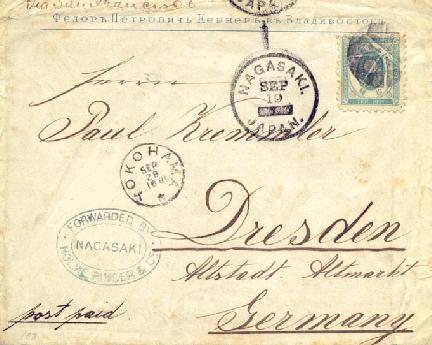 Via San Francisco
JAPAN
Федоръ Петровичъ Кернеръ въ Владивостокѣ
NAGASAKI.
SEP
19
JAPAN.
Herrn
Paul
YOKOHAMA
SEP
28
Dresden
FORWARDED BY
NAGASAKI
HOLME RINGER & Co
Altstadt, Altmarkt
post paid.
Germany